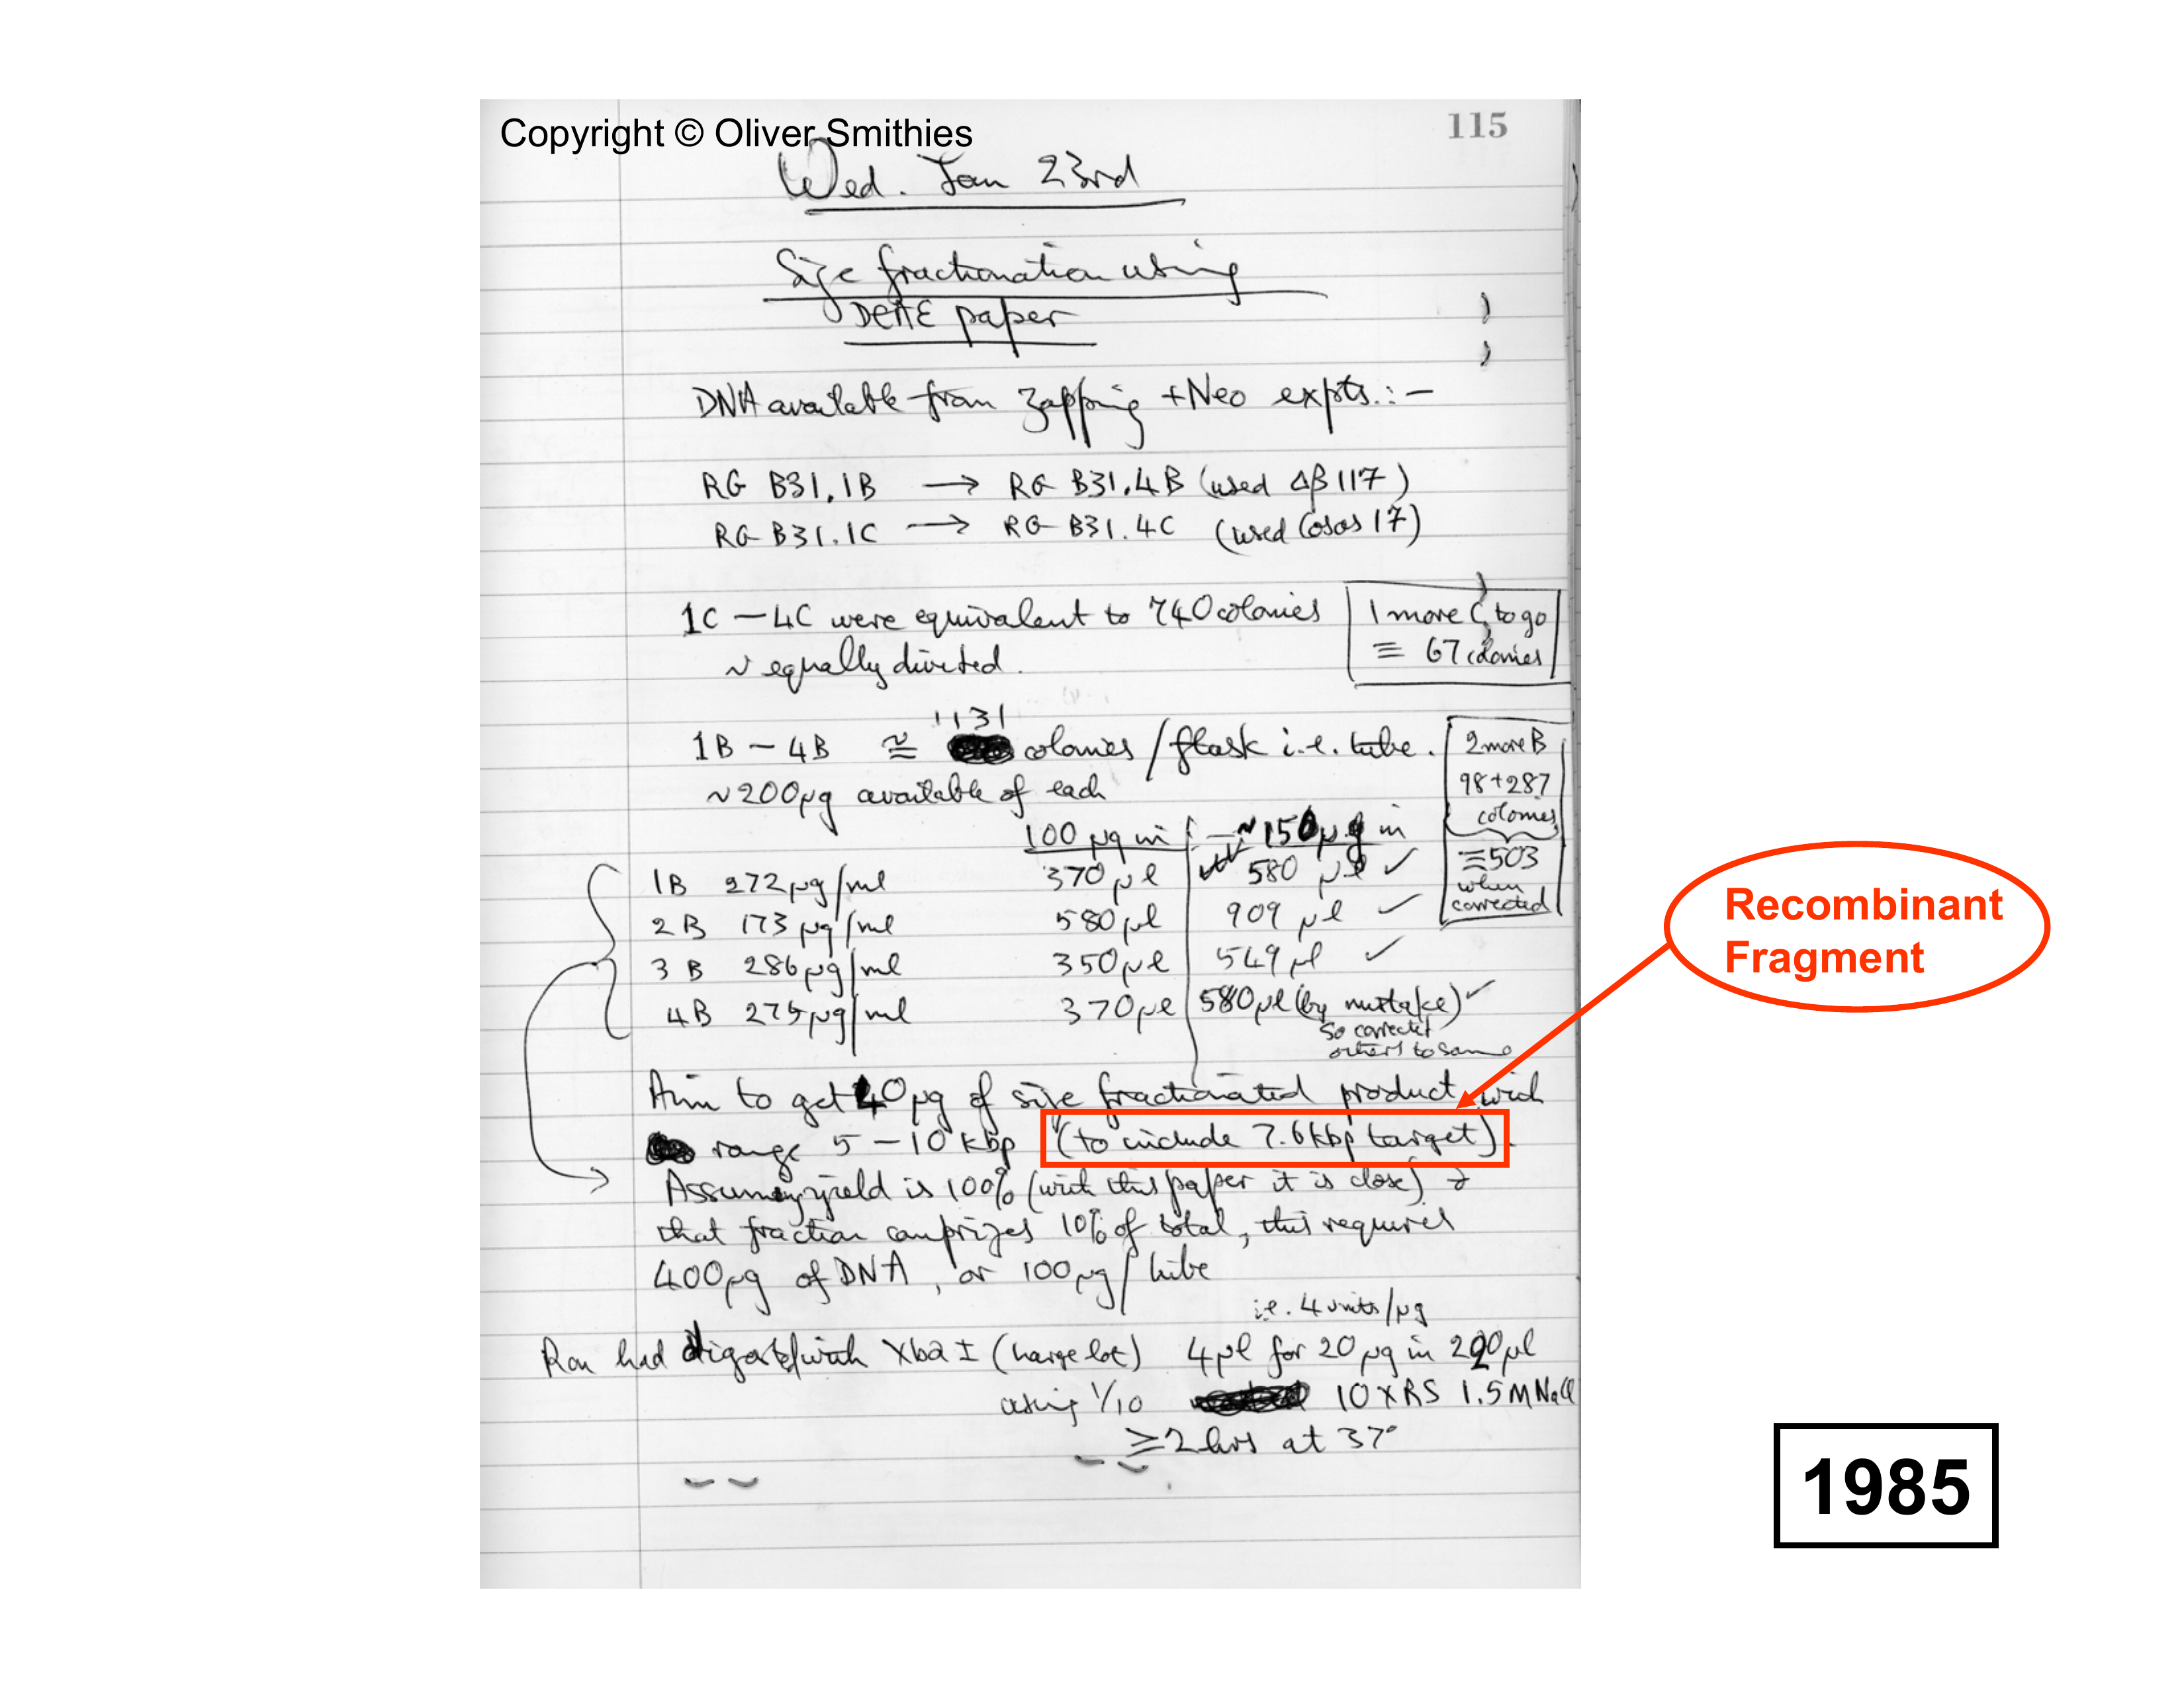 Copyright © Oliver Smithies
115
Wed. Jan 23rd
Size fractionation using
DEAE paper
DNA available from Zapping + Neo expts. :-
RG B31.1B → RG B31.4B (used Δβ117)
RG B31.1C → RG B31.4C (used Cosos 17)
1C - 4C were equivalent to 740 colonies
~ equally divided.
1 more C to go
≡ 67 colonies
1131
1B - 4B ≅ colonies / flask i.e. tube.
~200µg available of each
2 more B
98+287
colonies
≡503
when
corrected
100 µg in ~150µg in
1B 272µg/ml 370µl 580 µl ✓
2B 173µg/ml 580µl 909 µl ✓
3B 286µg/ml 350µl 549µl ✓
4B 275µg/ml 370µl 580µl (by mistake) ✓
so corrected
others to same
Aim to get 40µg of size fractionated product with
range 5-10 kbp (to include 7.6kbp target).
Assuming yield is 100% (with this paper it is close) &
that fraction comprizes 10% of total, this requires
400µg of DNA, or 100µg/tube
i.e. 4 units/µg
Ron had digested with XbaI (large lot) 4µl for 20µg in 200µl
using 1/10 10xRS 1.5M NaCl
≥2 hrs at 37°
Recombinant
Fragment
1985